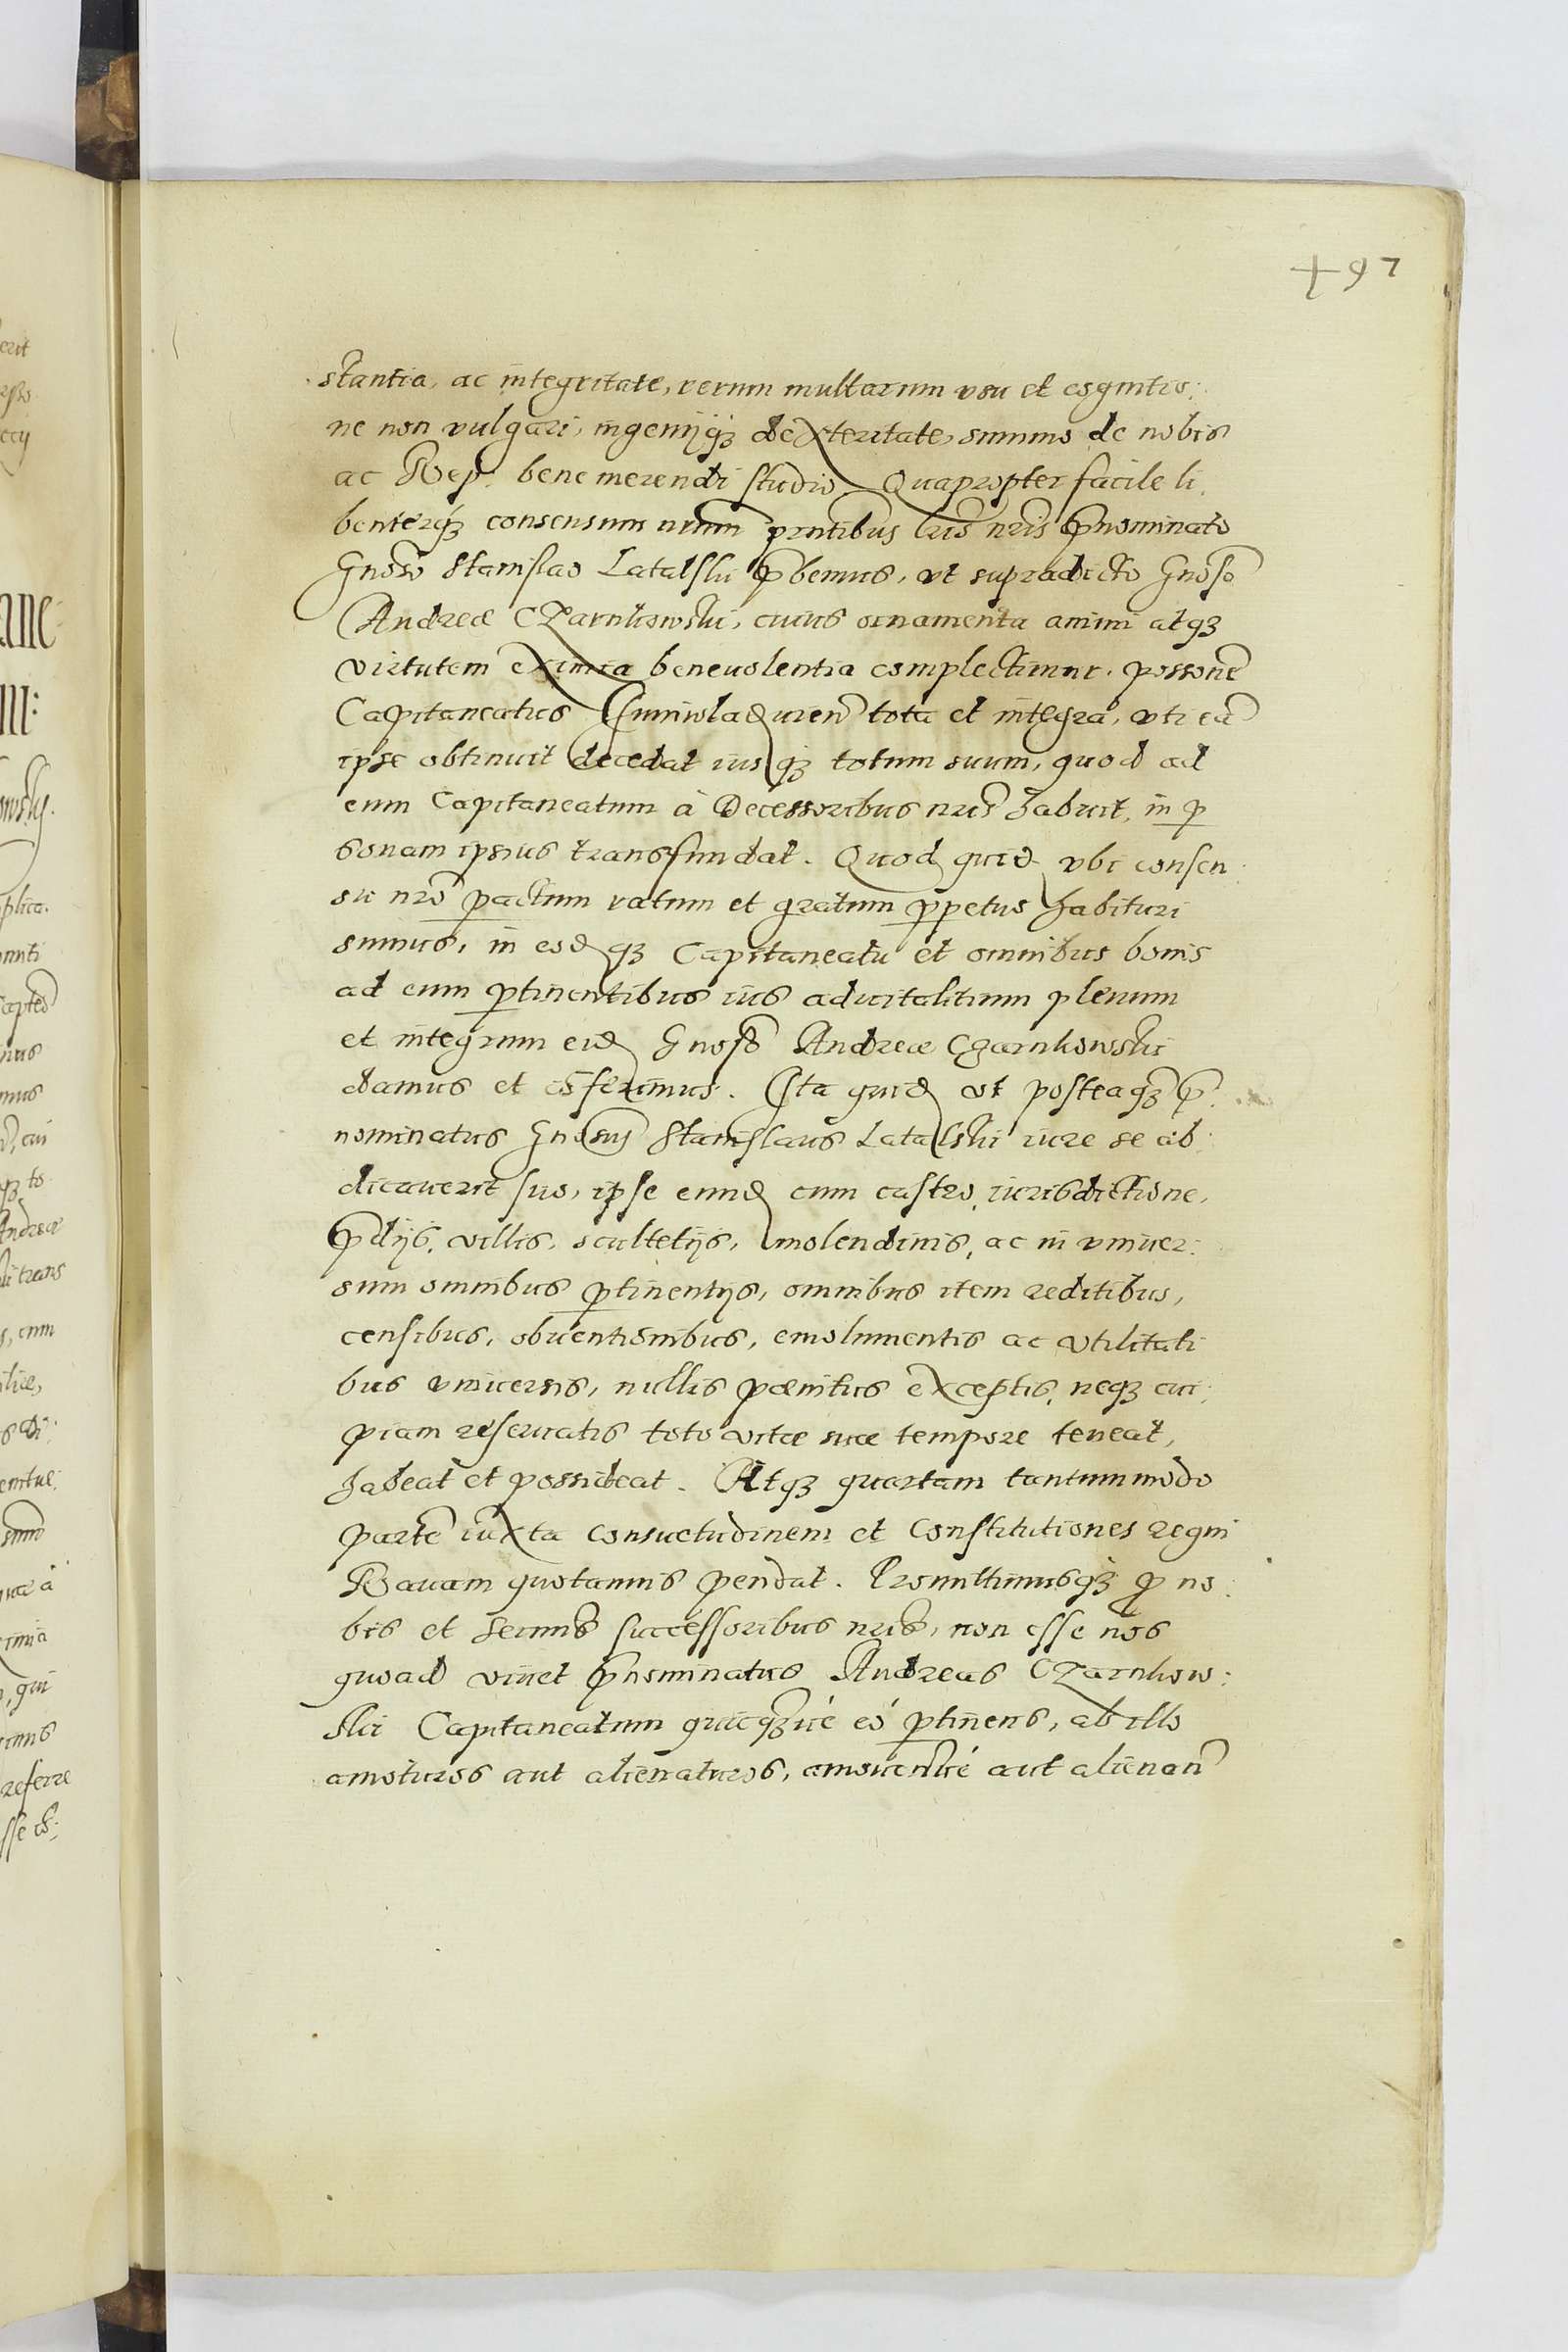 +97
stantia, ac integritate, rerum multarum usu et cōgnitio:
ne non vulgari, ingenijqꝫ dexteritate, summo de nobis
ac Reip. bene merendi studio. Quapropter facile li:
benterqꝫ consensum nrum̄ pn̄tibus lris̄ nris̄ p̄nominato
Gnoso Stanislao Latalski p̄bemus, vt supradicto Gnoso
Andreæ CZarnkowski, cuius ornamenta animi atqꝫ
virtutem eximia beneuolentia complectimur. possonē
Capitaneatus Iuniuladislauien̄ tota et integra, vti eā
ipse obtinuit decedat iusqꝫ totum suum, quod ad
eum Capitaneatum à Decessoribus nris̄ habuit, in ꝑ
sonam ipsius transfundat. Quod quidē vbi consen:
su nro̅ pactum ratum et gratum ꝑpetuo habituri
sumus, in eodēqꝫ Capitaneatu et omnibus bonis
ad eum ꝑtinentibus ius aduitalitium plenum
et integrum eidē Gnoso Andreæ Czarnkowski
damus et cōferimus. Ita quidē vt posteaqꝫ p̄:
nominatus Gnosus Stanislaus Latalski iure se ab:
dicauerit suo, ipse eundē cum castro, iurisdictione,
p̄dijs, villis, scultetijs, molendinis, ac in vniuer:
sum omnibus ꝑtinentijs, omnibus item reditibus,
censibus, obuentionibus, emolumentis ac vtilitati
bus vniuersis, nullis pænitus exceptis, neqꝫ cui:
piam reseruatis toto vitæ suæ tempore teneat,
habeat et possideat. Atqꝫ quartam tantummodo
partē iuxta consuetudinem et Constitutiones regni
Rauam quotannis pendat. Promittimusqꝫ ꝓ no:
bis et Serm̄is successoribus nris̄, non esse nos
quoad viuet p̄nominatus Andreas CZarnkow:
ski Capitaneatum quicqꝫué eó ꝑtinens, ab illo
amoturos aut alienaturos, amouendiué aut alienan̄